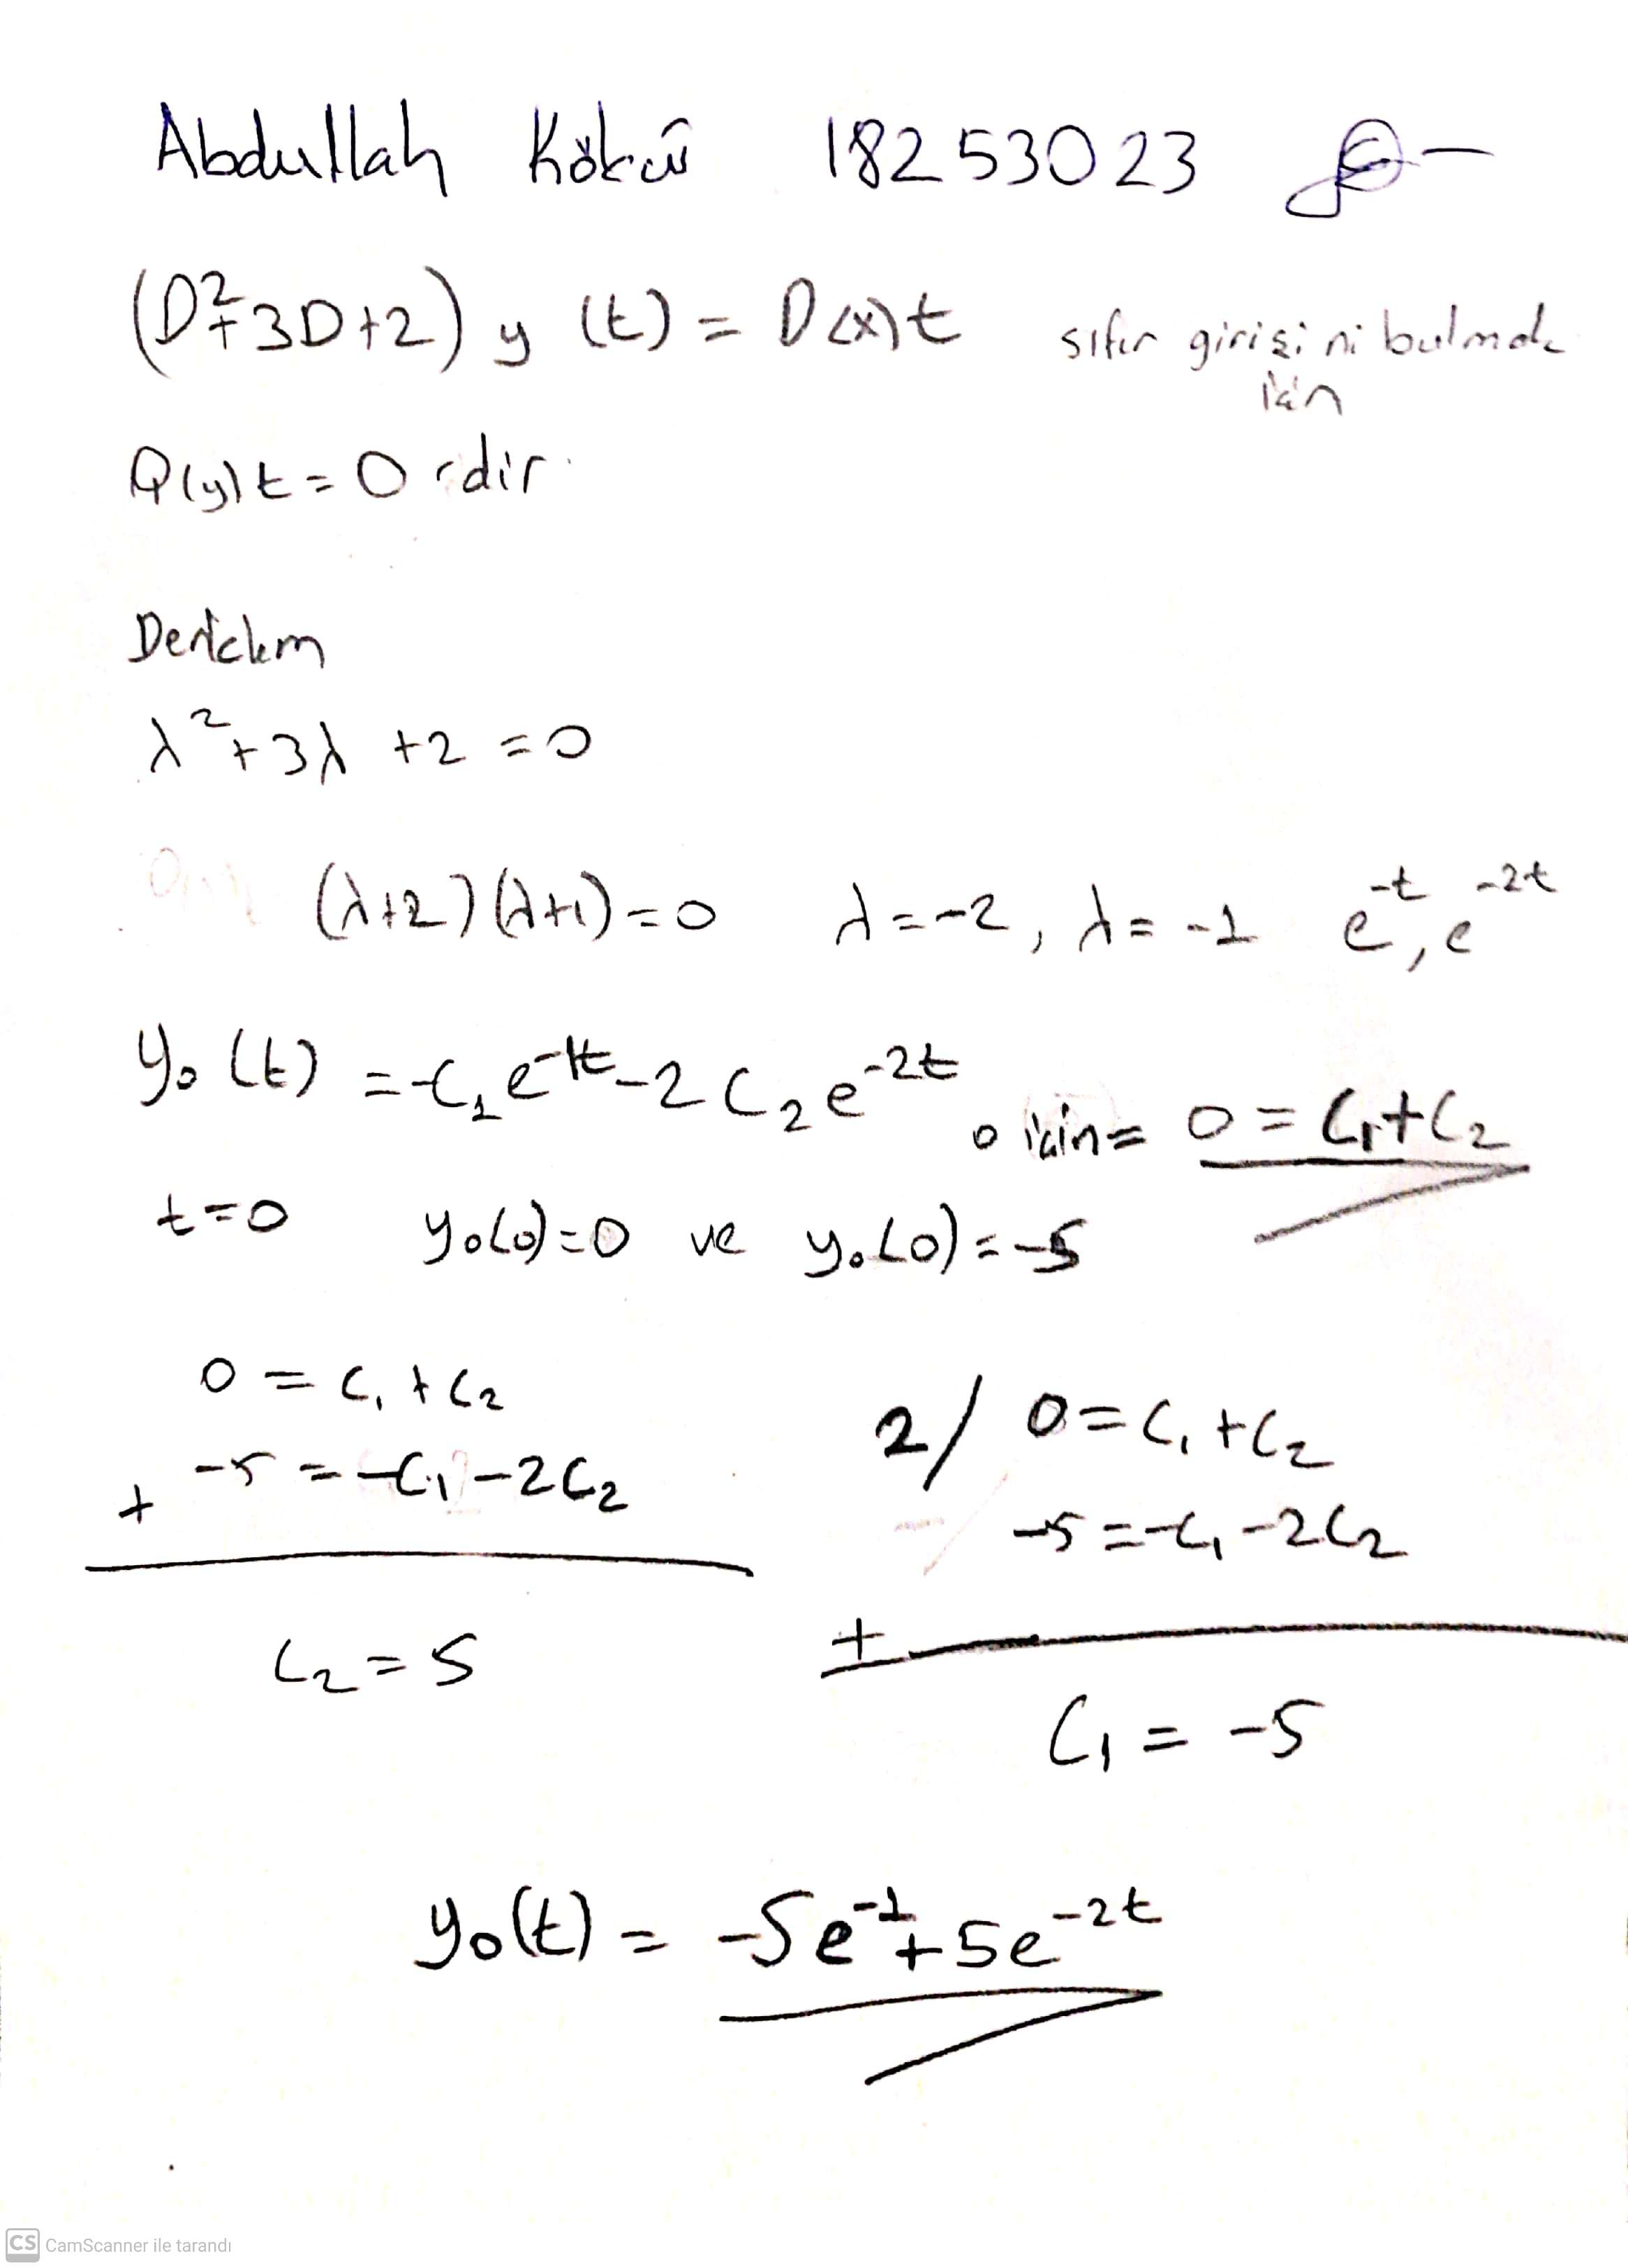 Abdullah Kökü 18253023
(D²+3D+2) y (t) = D(x)t sıfır girişini bulmak
için
Q(y)t = 0 'dir.
Denklem
λ²+3λ+2 = 0
(λ+2)(λ+1)=0 λ=-2, λ=-1 e^-t, e^-2t
y₀(t) = -C₁e^-1t -2C₂e^-2t 0 için = 0 = C₁+C₂
t=0 y₀(0)=0 ve y₀(0)=-5
0 = C₁+C₂
+ -5 = -C₁-2C₂
C₂=5
2/ 0=C₁+C₂
-5=-C₁-2C₂
+
C₁ = -5
y₀(t) = -5e^-1+5e^-2t
CS CamScanner ile tarandı